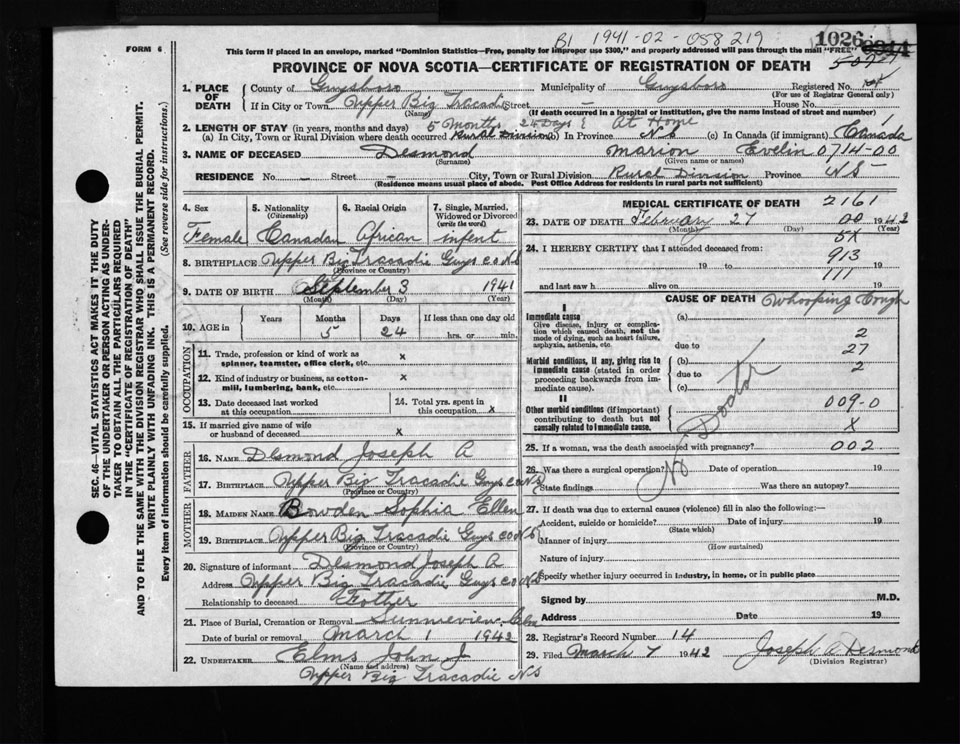 B1 1941-02-058219
1026
FORM 6
This form if placed in an envelope, marked "Dominion Statistics—Free, penalty for improper use $300," and properly addressed will pass through the mail "FREE"
PROVINCE OF NOVA SCOTIA—CERTIFICATE OF REGISTRATION OF DEATH
SEC. 46—VITAL STATISTICS ACT MAKES IT THE DUTY OF THE UNDERTAKER OR PERSON ACTING AS UNDERTAKER TO OBTAIN ALL THE PARTICULARS REQUIRED IN THE "CERTIFICATE OF REGISTRATION OF DEATH"
AND TO FILE THE SAME WITH THE DIVISION REGISTRAR WHO SHALL ISSUE THE BURIAL PERMIT.
WRITE PLAINLY WITH UNFADING INK. THIS IS A PERMANENT RECORD.
Every item of information should be carefully supplied. (See reverse side for instructions.)
1. PLACE OF DEATH
County of Guysboro Municipality of Guysboro Registered No.
(For use of Registrar General only)
If in City or Town Upper Big Tracadie Street - House No.
(Name) (If death occurred in a hospital or institution, give the name instead of street and number)
2. LENGTH OF STAY (in years, months and days) 5 Months Days At Home
(a) In City, Town or Rural Division where death occurred Rural Division (b) In Province N.S (c) In Canada (if immigrant) Canada
3. NAME OF DECEASED Desmond Marion Evelin 0714-00
(Surname) (Given name or names)
RESIDENCE No. - Street - City, Town or Rural Division Rural Division Province NS
(Residence means usual place of abode. Post Office Address for residents in rural parts not sufficient)
4. Sex Female
5. Nationality (Citizenship) Canadan
6. Racial Origin African
7. Single, Married, Widowed or Divorced (write the word) infent
8. BIRTHPLACE Upper Big Tracadie Guys co NS
(Province or Country)
9. DATE OF BIRTH September 3 1941
(Month) (Day) (Year)
10. AGE in Years Months Days If less than one day old
5 24 hrs. or min.
OCCUPATION
11. Trade, profession or kind of work as spinner, teamster, office clerk, etc. x
12. Kind of industry or business, as cotton-mill, lumbering, bank, etc. x
13. Date deceased last worked at this occupation
14. Total yrs. spent in this occupation x
15. If married give name of wife or husband of deceased x
FATHER
16. NAME Desmond Joseph A
17. BIRTHPLACE Upper Big Tracadie Guys co NS
(Province or Country)
MOTHER
18. MAIDEN NAME Bowden Sophia Ellen
19. BIRTHPLACE Upper Big Tracadie Guys co NS
(Province or Country)
20. Signature of informant Desmond Joseph A
Address Upper Big Tracadie Guys co NS
Relationship to deceased Fother
21. Place of Burial, Cremation or Removal Sunnieview
Date of burial or removal March 1 1942
22. UNDERTAKER Elms John J
(Name and address)
Upper Big Tracadie NS
MEDICAL CERTIFICATE OF DEATH 2161
23. DATE OF DEATH February 27 1942
(Month) (Day) (Year)
00
5X
24. I HEREBY CERTIFY that I attended deceased from:
913
19 to 19
111
and last saw h alive on 19
CAUSE OF DEATH
I
Immediate cause
Give disease, injury or complication which caused death, not the mode of dying, such as heart failure, asphyxia, asthenia, etc.
(a) Whooping Cough
2
due to 27
Morbid conditions, if any, giving rise to immediate cause (stated in order proceeding backwards from immediate cause).
(b) 2
due to
(c)
II
Other morbid conditions (if important) contributing to death but not causally related to immediate cause.
009-0
X
No Doctor
25. If a woman, was the death associated with pregnancy? 002
26. Was there a surgical operation? No Date of operation 19
State findings Was there an autopsy?
27. If death was due to external causes (violence) fill in also the following:—
Accident, suicide or homicide? Date of injury 19
(State which)
Manner of injury
(How sustained)
Nature of injury
Specify whether injury occurred in industry, in home, or in public place
Signed by M.D.
Address Date 19
28. Registrar's Record Number 14
29. Filed March 7 1942 Joseph A Desmond
(Division Registrar)